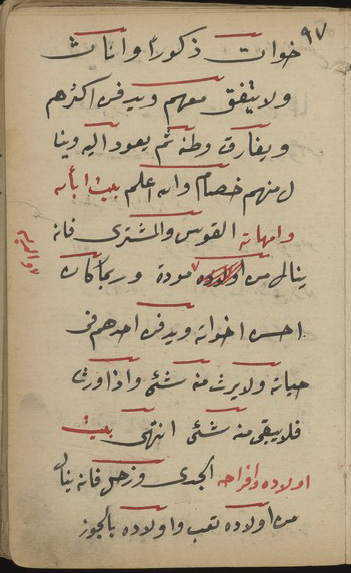 ٩٧
خوات ذكورا واناث
ولا يتفق معهم ويدفن اكثرهم
ويفارق وطنه ثم يعود اليه وينا
ل منهم خصام والله اعلم بيت ابائه
وامهاته القوس والمشترى فانه
ينال من مودة وربما كان
احسن اخوانه ويدفن احدهم فى
حياته ولا يرث منه شئى واذا ورث
فلا يبقى منه شئى انتهى بيت
اولاده وافراحه الجدى وزحل فانه ينال
من اولاده تعب واولاده بالجوز